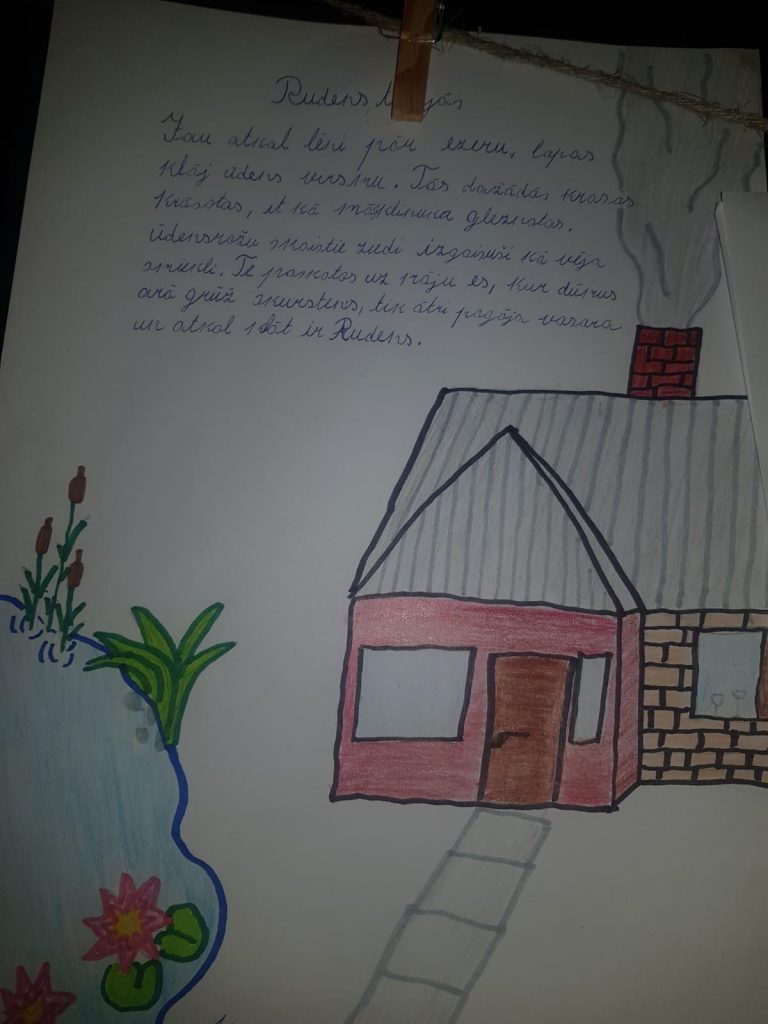 Rudens
Jau atkal lēni pār ezeru, lapas
klāj ūdens virsmu. Tās dažādās krāsās
krāsotas, it kā mākslinieka gleznotas.
Ūdensrožu skaistie ziedi izgaisuši kā vēja
smiekli. Te paskatos uz māju es, kur dūmus
ārā grūž skurstens, tik ātri pagāja vasara
un atkal klāt ir Rudens.